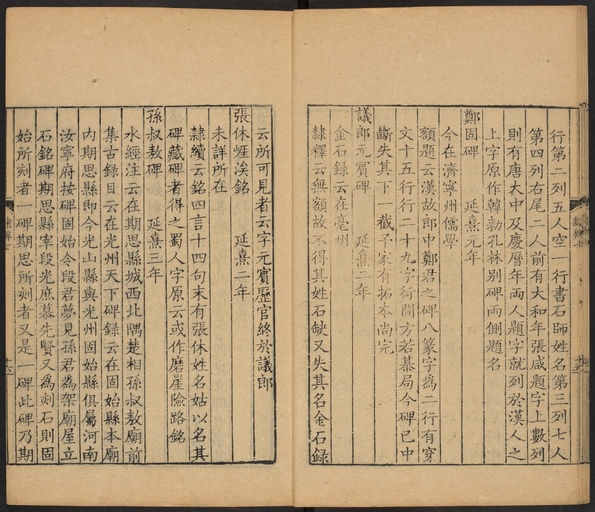 行第二列五人空一行書石師姓名第三列七人
第四列右尾二人前有大和年張咸題字上數列
則有唐大中及慶曆年両人題字就列於漢人之
上字原作韓勑孔林別碑両側題名
鄭固碑　延熹元年
今在濟寧州儒學
額題云漢故郎中鄭君之碑八篆字為二行有穿
文十五行行二十九字術間方若棊局今碑已中
斷失其下一截予家有拓本尚完
議郎元賓碑　延熹二年
金石錄云在亳州
隸釋云無額故不得其姓石缺又失其名金石錄
云所可見者云字元賓歷官終於議郎
張休崕涘銘　延熹二年
未詳所在
隸續云銘四言十四句末有張休姓名姑以名其
碑藏碑者得之蜀人字原云或作磨崖險路銘
孫叔敖碑　延熹三年
水經注云在期思縣城西北隅楚相孫叔敖廟前
集古錄目云在光州天下碑錄云在固始縣本廟
內期思縣即今光山縣與光州固始縣俱屬河南
汝寧府按碑固始令段君夢見孫君為架廟屋立
石銘碑期思縣宰段光庶慕先賢又為刻石則固
始所刻者一碑期思所刻者又是一碑此碑乃期